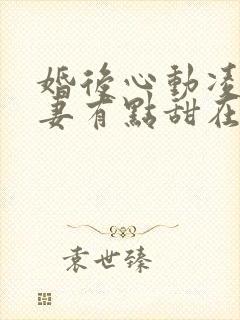 婚後心動凌
妻有點甜在
袁世臻